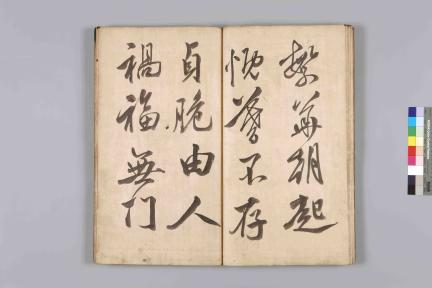 繁華朝起
慨暮不存
貞脆由人
禍福無門